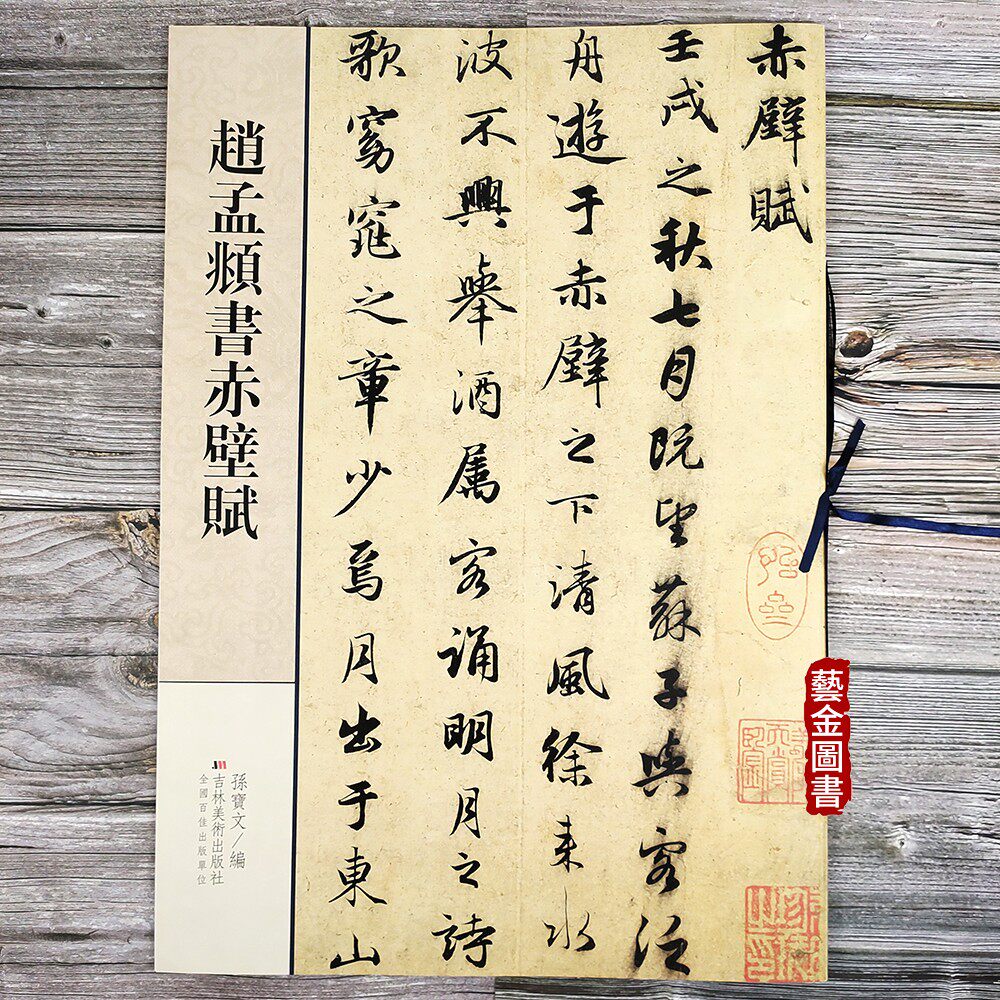 赤壁賦
壬戌之秋七月既望蘇子與客泛
舟遊于赤壁之下清風徐来水
波不興舉酒属客誦明月之詩
歌窈窕之章少焉月出于東山
趙孟頫書赤壁賦
孫寶文/編
吉林美術出版社
全國百佳出版單位
藝金圖書